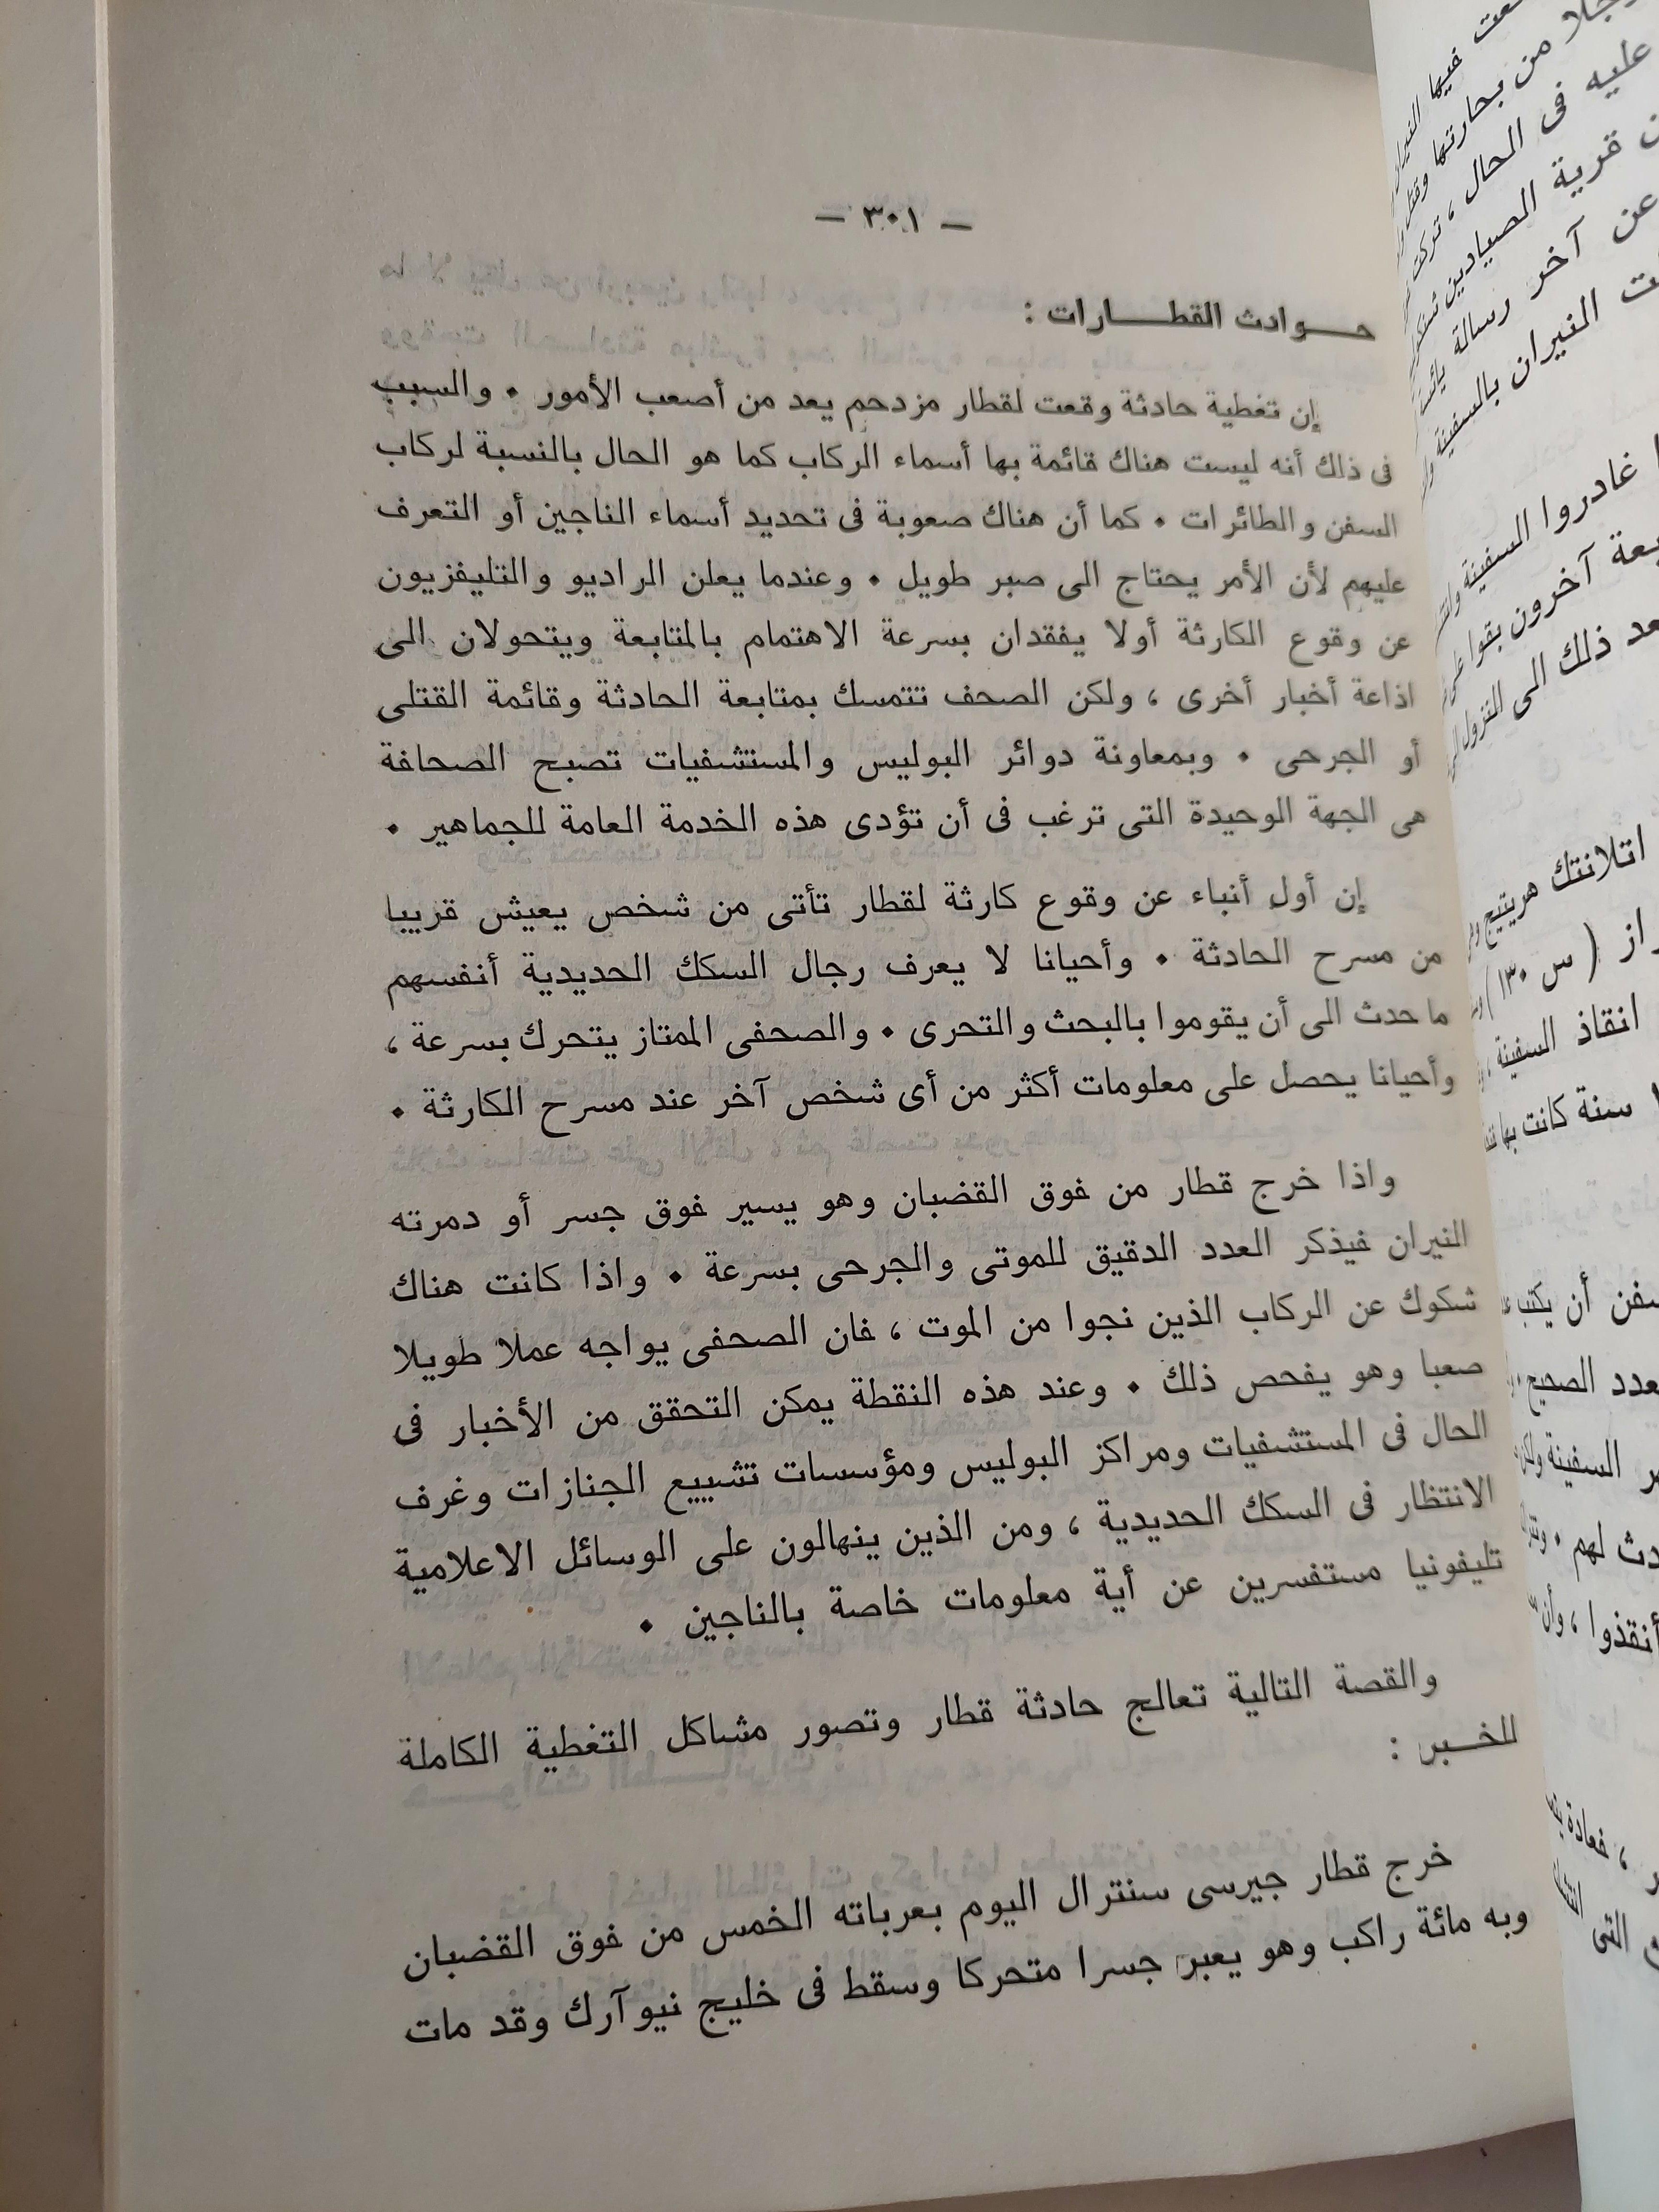 — ٣٠١ —
حـــوادث القطـــارات :
إن تغطية حادثة وقعت لقطار مزدحم يعد من أصعب الأمور • والسبب
فى ذلك أنه ليست هناك قائمة بها أسماء الركاب كما هو الحال بالنسبة لركاب
السفن والطائرات • كما أن هناك صعوبة فى تحديد أسماء الناجين أو التعرف
عليهم لأن الأمر يحتاج الى صبر طويل • وعندما يعلن الراديو والتليفزيون
عن وقوع الكارثة أولا يفقدان بسرعة الاهتمام بالمتابعة ويتحولان الى
اذاعة أخبار أخرى ، ولكن الصحف تتمسك بمتابعة الحادثة وقائمة القتلى
أو الجرحى • وبمعاونة دوائر البوليس والمستشفيات تصبح الصحافة
هى الجهة الوحيدة التى ترغب فى أن تؤدى هذه الخدمة العامة للجماهير •
إن أول أنباء عن وقوع كارثة لقطار تأتى من شخص يعيش قريبا
من مسرح الحادثة • وأحيانا لا يعرف رجال السكك الحديدية أنفسهم
ما حدث الى أن يقوموا بالبحث والتحرى • والصحفى الممتاز يتحرك بسرعة ،
وأحيانا يحصل على معلومات أكثر من أى شخص آخر عند مسرح الكارثة •
واذا خرج قطار من فوق القضبان وهو يسير فوق جسر أو دمرته
النيران فيذكر العدد الدقيق للموتى والجرحى بسرعة • واذا كانت هناك
شكوك عن الركاب الذين نجوا من الموت ، فان الصحفى يواجه عملا طويلا
صعبا وهو يفحص ذلك • وعند هذه النقطة يمكن التحقق من الأخبار فى
الحال فى المستشفيات ومراكز البوليس ومؤسسات تشييع الجنازات وغرف
الانتظار فى السكك الحديدية ، ومن الذين ينهالون على الوسائل الاعلامية
تليفونيا مستفسرين عن أية معلومات خاصة بالناجين •
والقصة التالية تعالج حادثة قطار وتصور مشاكل التغطية الكاملة
للخـــبر :
خرج قطار جيرسى سنترال اليوم بعرباته الخمس من فوق القضبان
وبه مائة راكب وهو يعبر جسرا متحركا وسقط فى خليج نيو آرك وقد مات
فيها
من بحارتها
عليه فى الحال ، تركت
قرية الصيادين
عن آخر رسالة
النيران بالسفينة
غادروا السفينة
آخرون بقوا
ذلك الى النزول
اتلانتك هريتيج
( س ١٣٠ )
انقاذ السفينة
سنة كانت بها
أن يكتب
الصحيح
السفينة
لهم •
أنقذوا ، وأن
، فعادة
التى